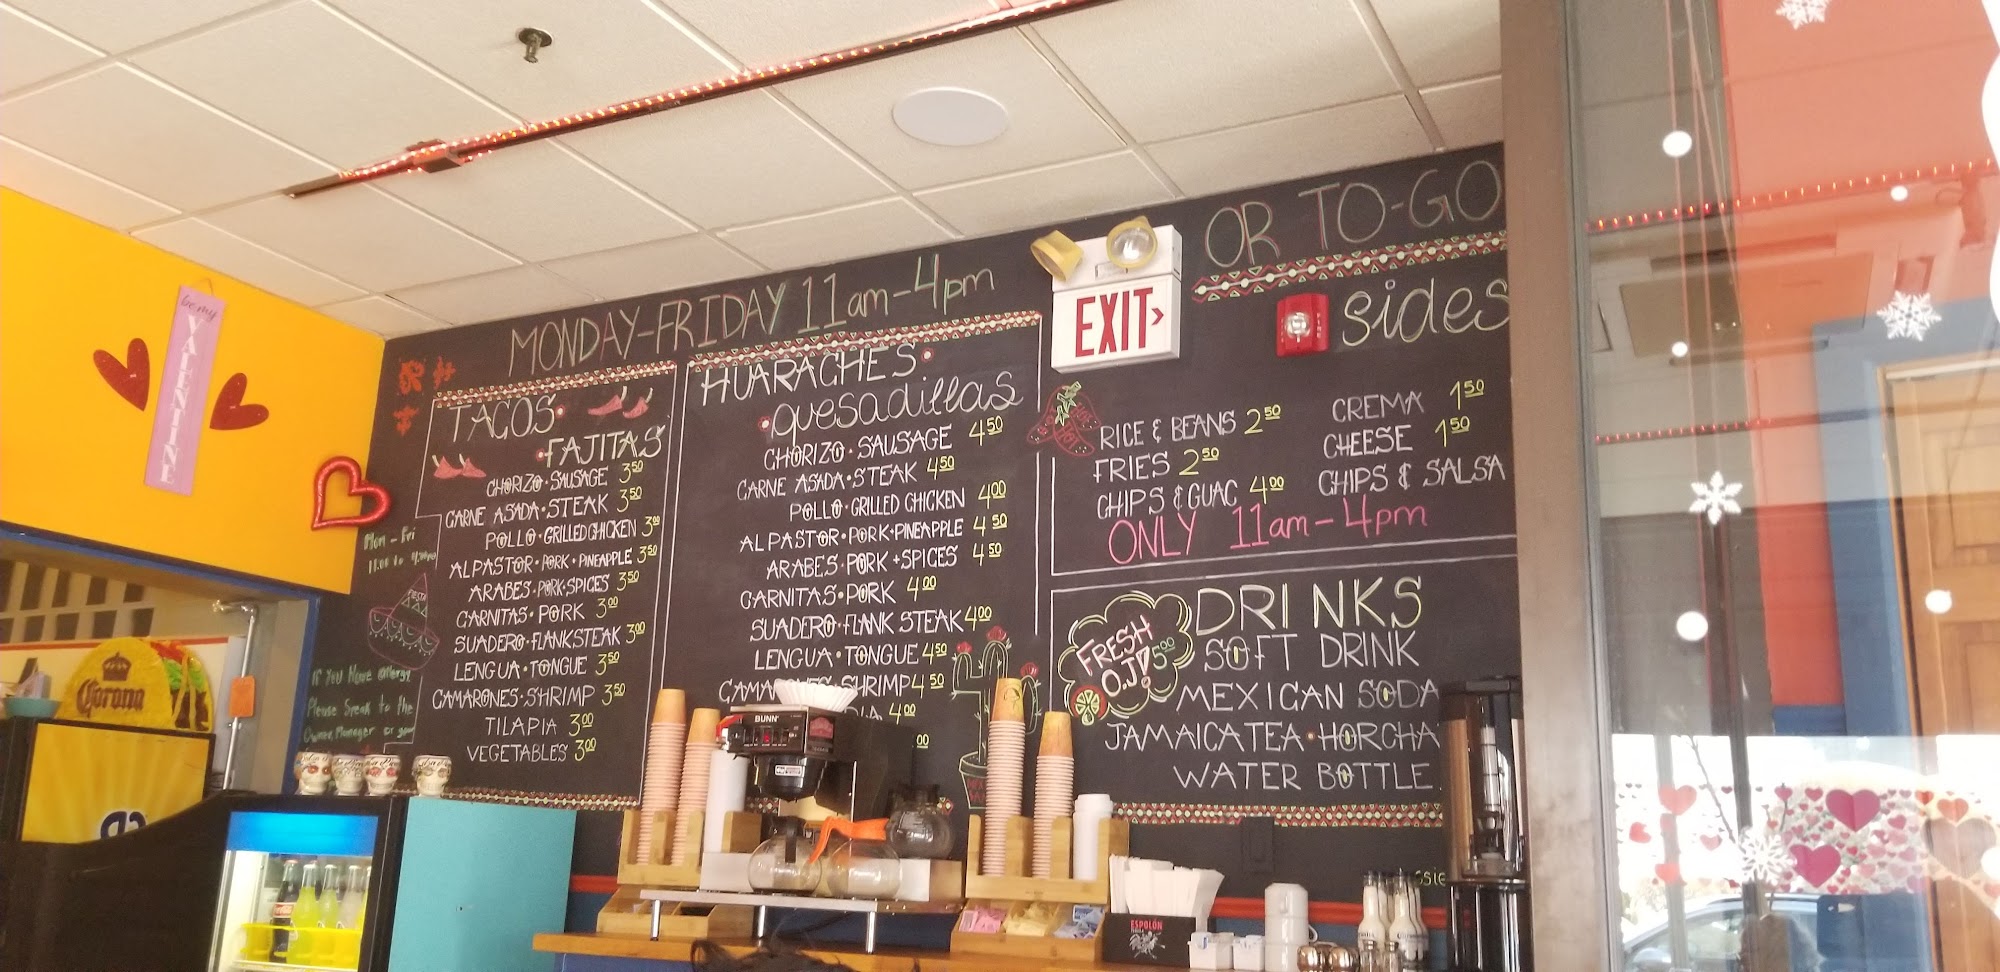 be my
VALENTINE
MONDAY-FRIDAY 11am-4pm
OR TO-GO
EXIT
FIRE
TACOS
FAJITAS
CHORIZO·SAUSAGE 3.50
CARNE ASADA·STEAK 3.50
POLLO·GRILLED CHICKEN 3.00
AL PASTOR·PORK·PINEAPPLE 3.50
ARABES·PORK+SPICES 3.50
CARNITAS·PORK 3.00
SUADERO·FLANK STEAK 3.00
LENGUA·TONGUE 3.50
CAMARONES·SHRIMP 3.50
TILAPIA 3.00
VEGETABLES 3.00
HUARACHES·
·quesadillas
CHORIZO·SAUSAGE 4.50
CARNE ASADA·STEAK 4.50
POLLO·GRILLED CHICKEN 4.00
AL PASTOR·PORK·PINEAPPLE 4.50
ARABES·PORK+SPICES 4.50
CARNITAS·PORK 4.00
SUADERO·FLANK STEAK 4.00
LENGUA·TONGUE 4.50
CAMARONES·SHRIMP 4.50
4.00
sides
RICE & BEANS 2.50
FRIES 2.50
CHIPS & GUAC 4.00
CREMA 1.50
CHEESE 1.50
CHIPS & SALSA
ONLY 11am-4pm
DRINKS
FRESH
O.J! 5.00
SOFT DRINK
MEXICAN SODA
JAMAICA TEA·HORCHA
WATER BOTTLE
Mon - Fri
FIESTA
If You Have allergy
Please Speak to the
Owner, Manager or your
Corona
BUNN
ESPOLÓN